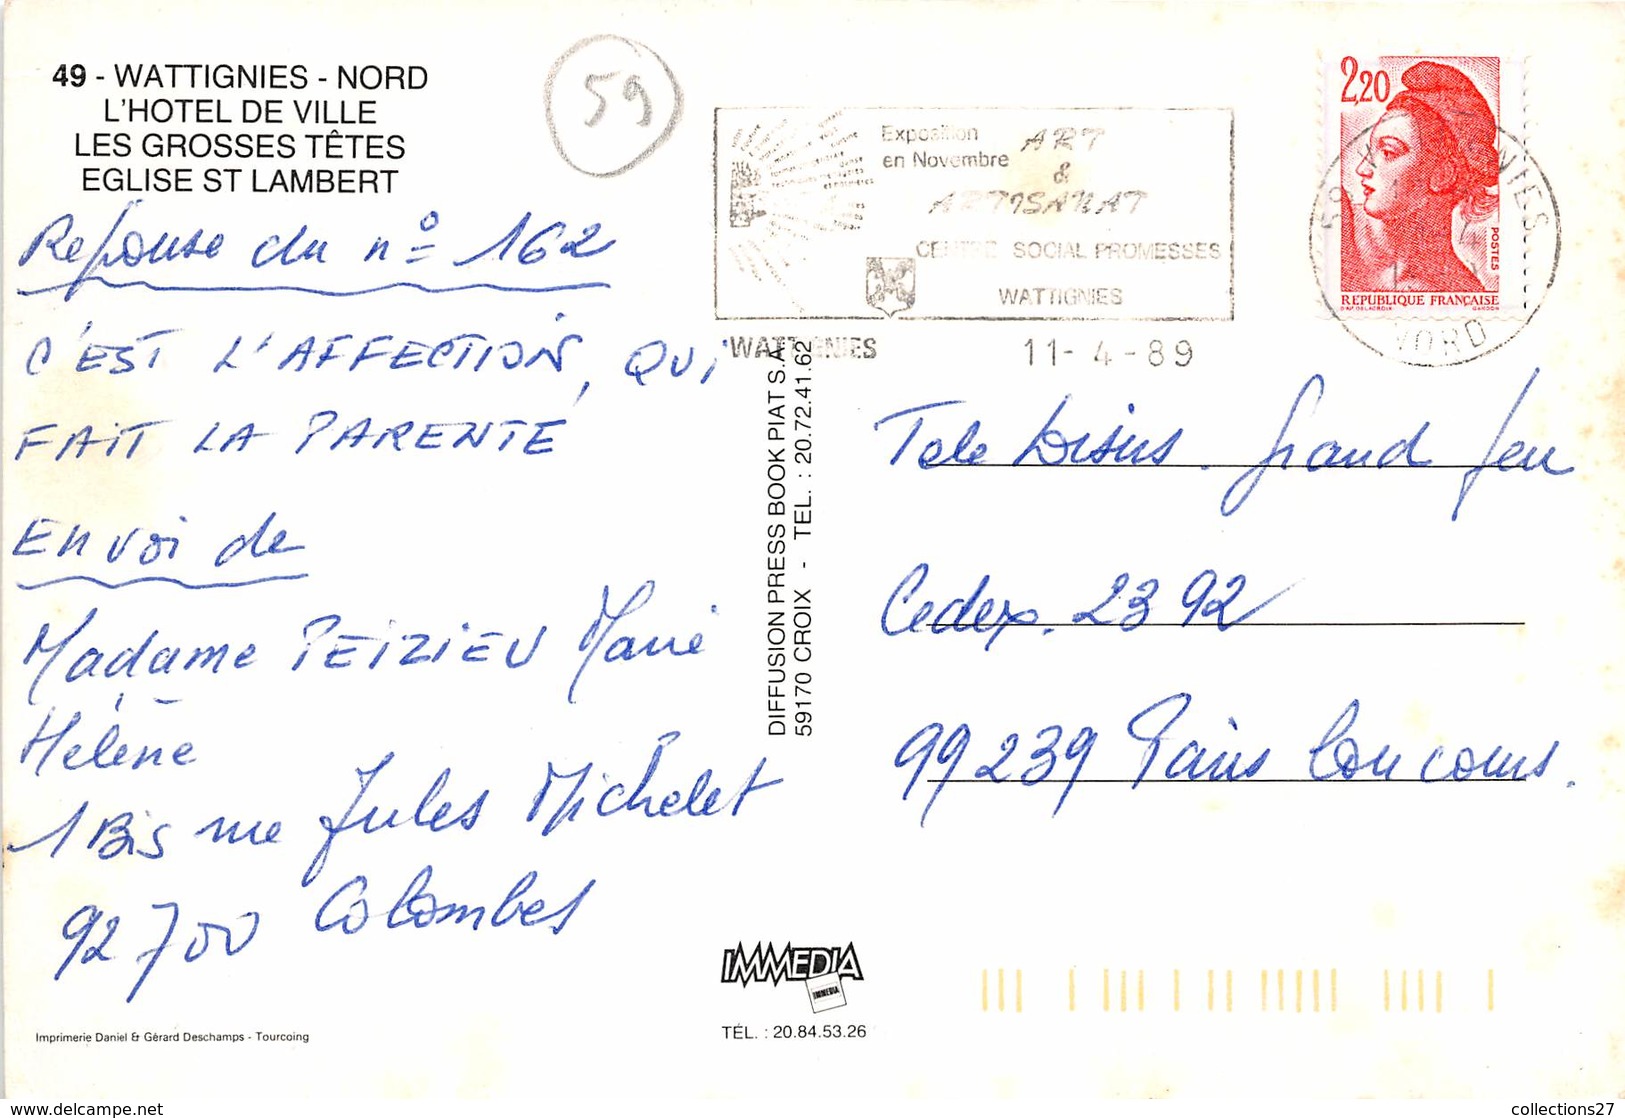 49 - WATTIGNIES - NORD
L'HOTEL DE VILLE
LES GROSSES TÊTES
EGLISE ST LAMBERT
59
Réponse du nº 162
C'EST L'AFFECTION, QUI
FAIT LA PARENTÉ
Envoi de
Madame PEIZIEU Marie
Hélène
1 Bis rue Jules Michelet
92700 Colombes
Imprimerie Daniel & Gérard Deschamps - Tourcoing
Exposition
en Novembre
ART
&
ARTISANAT
CENTRE SOCIAL PROMESSES
WATTIGNIES
WATTIGNIES
11- 4 -89
2,20
POSTES
REPUBLIQUE FRANÇAISE
D'AP. DELACROIX GANDON
NORD
DIFFUSION PRESS BOOK PIAT S.A.
59170 CROIX - TEL. : 20.72.41.62
Tele Disus. Grand Jeu
Cedex. 2392
99239 Paris Concours.
IMMEDIA
IMMEDIA
TÉL. : 20.84.53.26
collections27